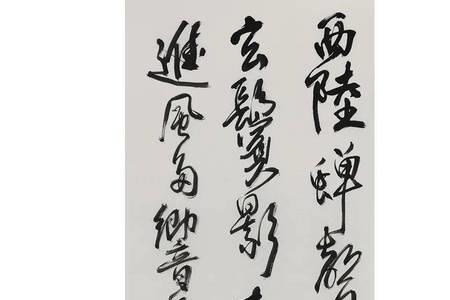 西陸蟬聲
玄鬢影
進風多響